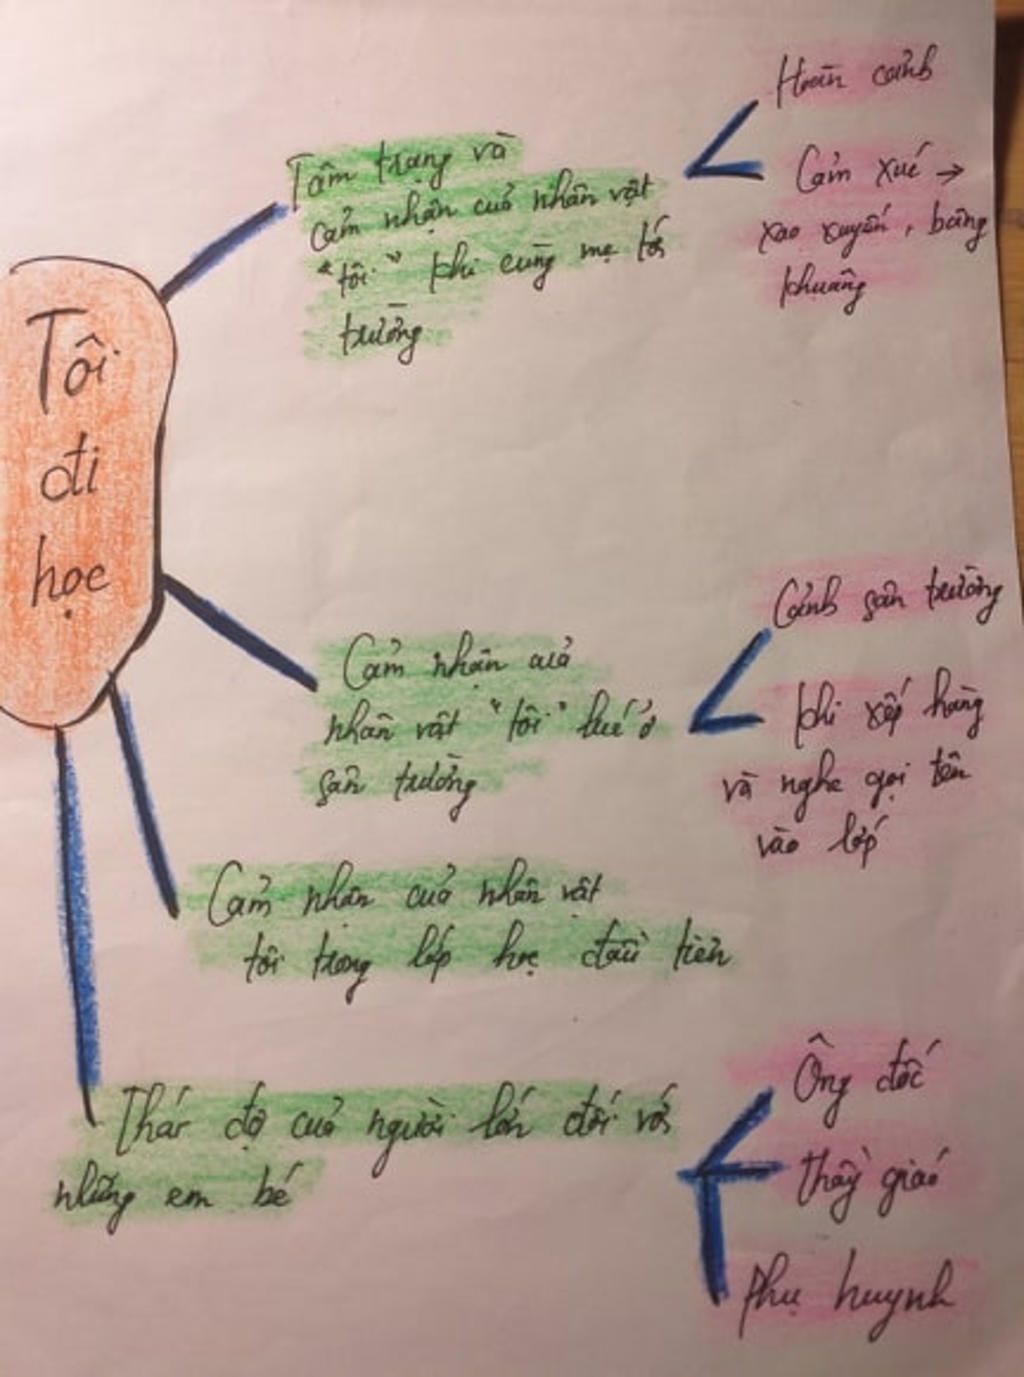 Tôi
đi
học
Tâm trạng và
cảm nhận của nhân vật
"tôi" khi cùng mẹ tới
trường
Hoàn cảnh
Cảm xúc →
xao xuyến, bâng
khuâng
Cảm nhận của
nhân vật "tôi" lúc ở
sân trường
Cảnh sân trường
khi xếp hàng
và nghe gọi tên
vào lớp
Cảm nhận của nhân vật
tôi trong lớp học đầu tiên
Thái độ của người lớn đối với
những em bé
Ông đốc
thầy giáo
phụ huynh